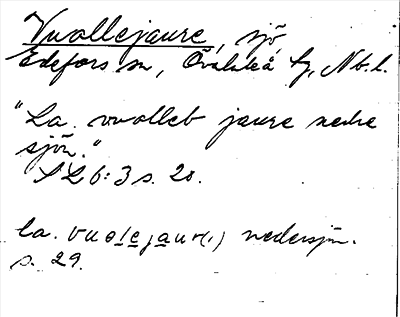 Vuollejaure, sjö,
Edefors sn, Överluleå tg, Nb.l.
"La. vuolleb jaure nedre
sjön."
SL 6:3 s. 20.
la. vuolejaur(i) nedersjön.
s. 29.